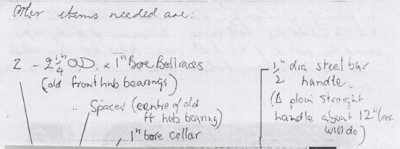 Other items needed are:
2 - 2 1/4" O.D. x 1" Bore Ballraces
(old front hub bearings)
Spacer (centre of old
ft hub bearing)
1" bore collar
1/2" dia steel bar
handle
(A plain straight
handle about 12" long
will do)